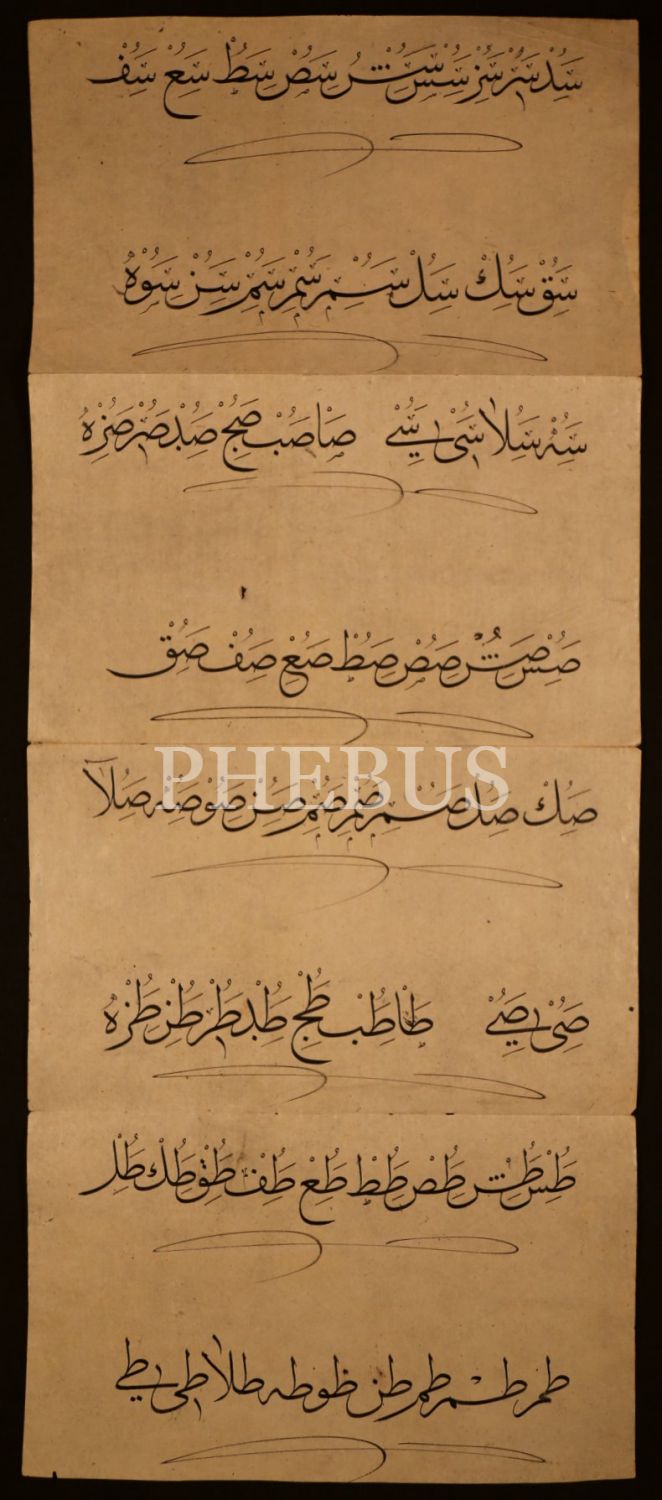 سد سر سز سس سش سص سط سع سف
سق سك سل سم سم سم سن سو ه
سه سلا سى سے صا صب صج صد صر صز ه
صس صش صص صط صع صف صق
PHEBUS
صك صل صم صم صم صن صو صه صلا
صى صے طا طب طج طد طر طز ه
طس طش طص طط طع طف طق طك طل
طم طم طم طن طو طه طلا طى طے